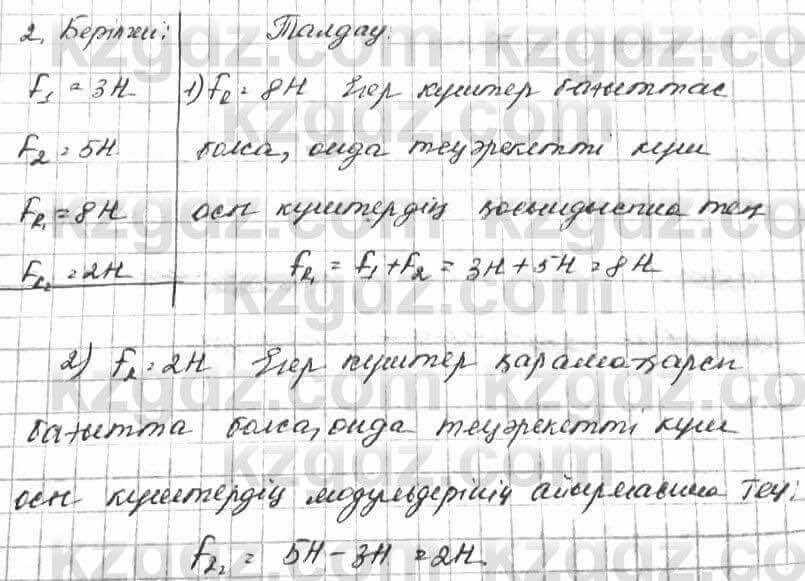 2. Берілгені: Талдау:
F₁ = 3Н 1) F_R = 8Н Егер күштер бағыттас
F₂ = 5Н болса, онда теңәрекетті күш
F_R₁ = 8Н осы күштердің қосындысына тең
F_R₂ = 2Н F_R₁ = F₁ + F₂ = 3Н + 5Н = 8Н
2) F_R = 2Н Егер күштер қарама-қарсы
бағытта болса, онда теңәрекетті күш
осы күштердің модульдерінің айырмасына тең:
F_R₂ = 5Н - 3Н = 2Н.
kzgdz.com